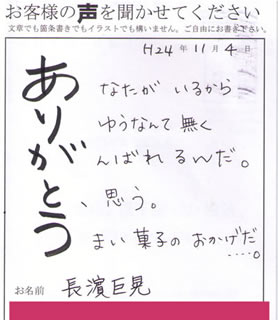 お客様の声を聞かせてください
文章でも箇条書きでもイラストでも構いません。ご自由にお書き下さい。
H24年11月4日
ありがとう
なたが いるから
ゆうなんて 無く
んばれるんだ。
、思う。
まい菓子のおかげだ
……。
お名前 長濵巨晃